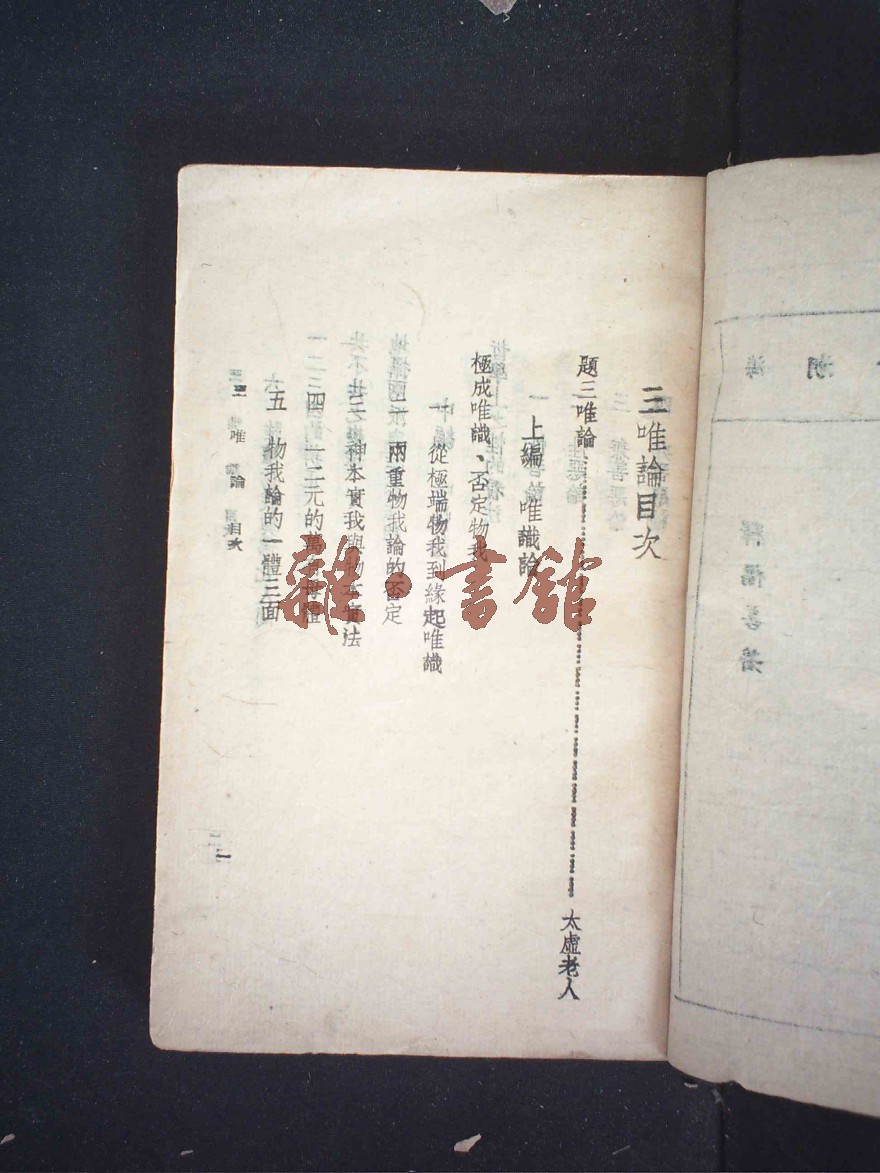 三唯論目次
題三唯論 太虛老人
上編 唯識論
極成唯識、否定物我
一 從極端物我到緣起唯識
二 兩重物我論的否定
三 神本實我與物本實法
四 一二元的萬有
五 物我論的一體三面
三唯論 目次
一
雜·書館